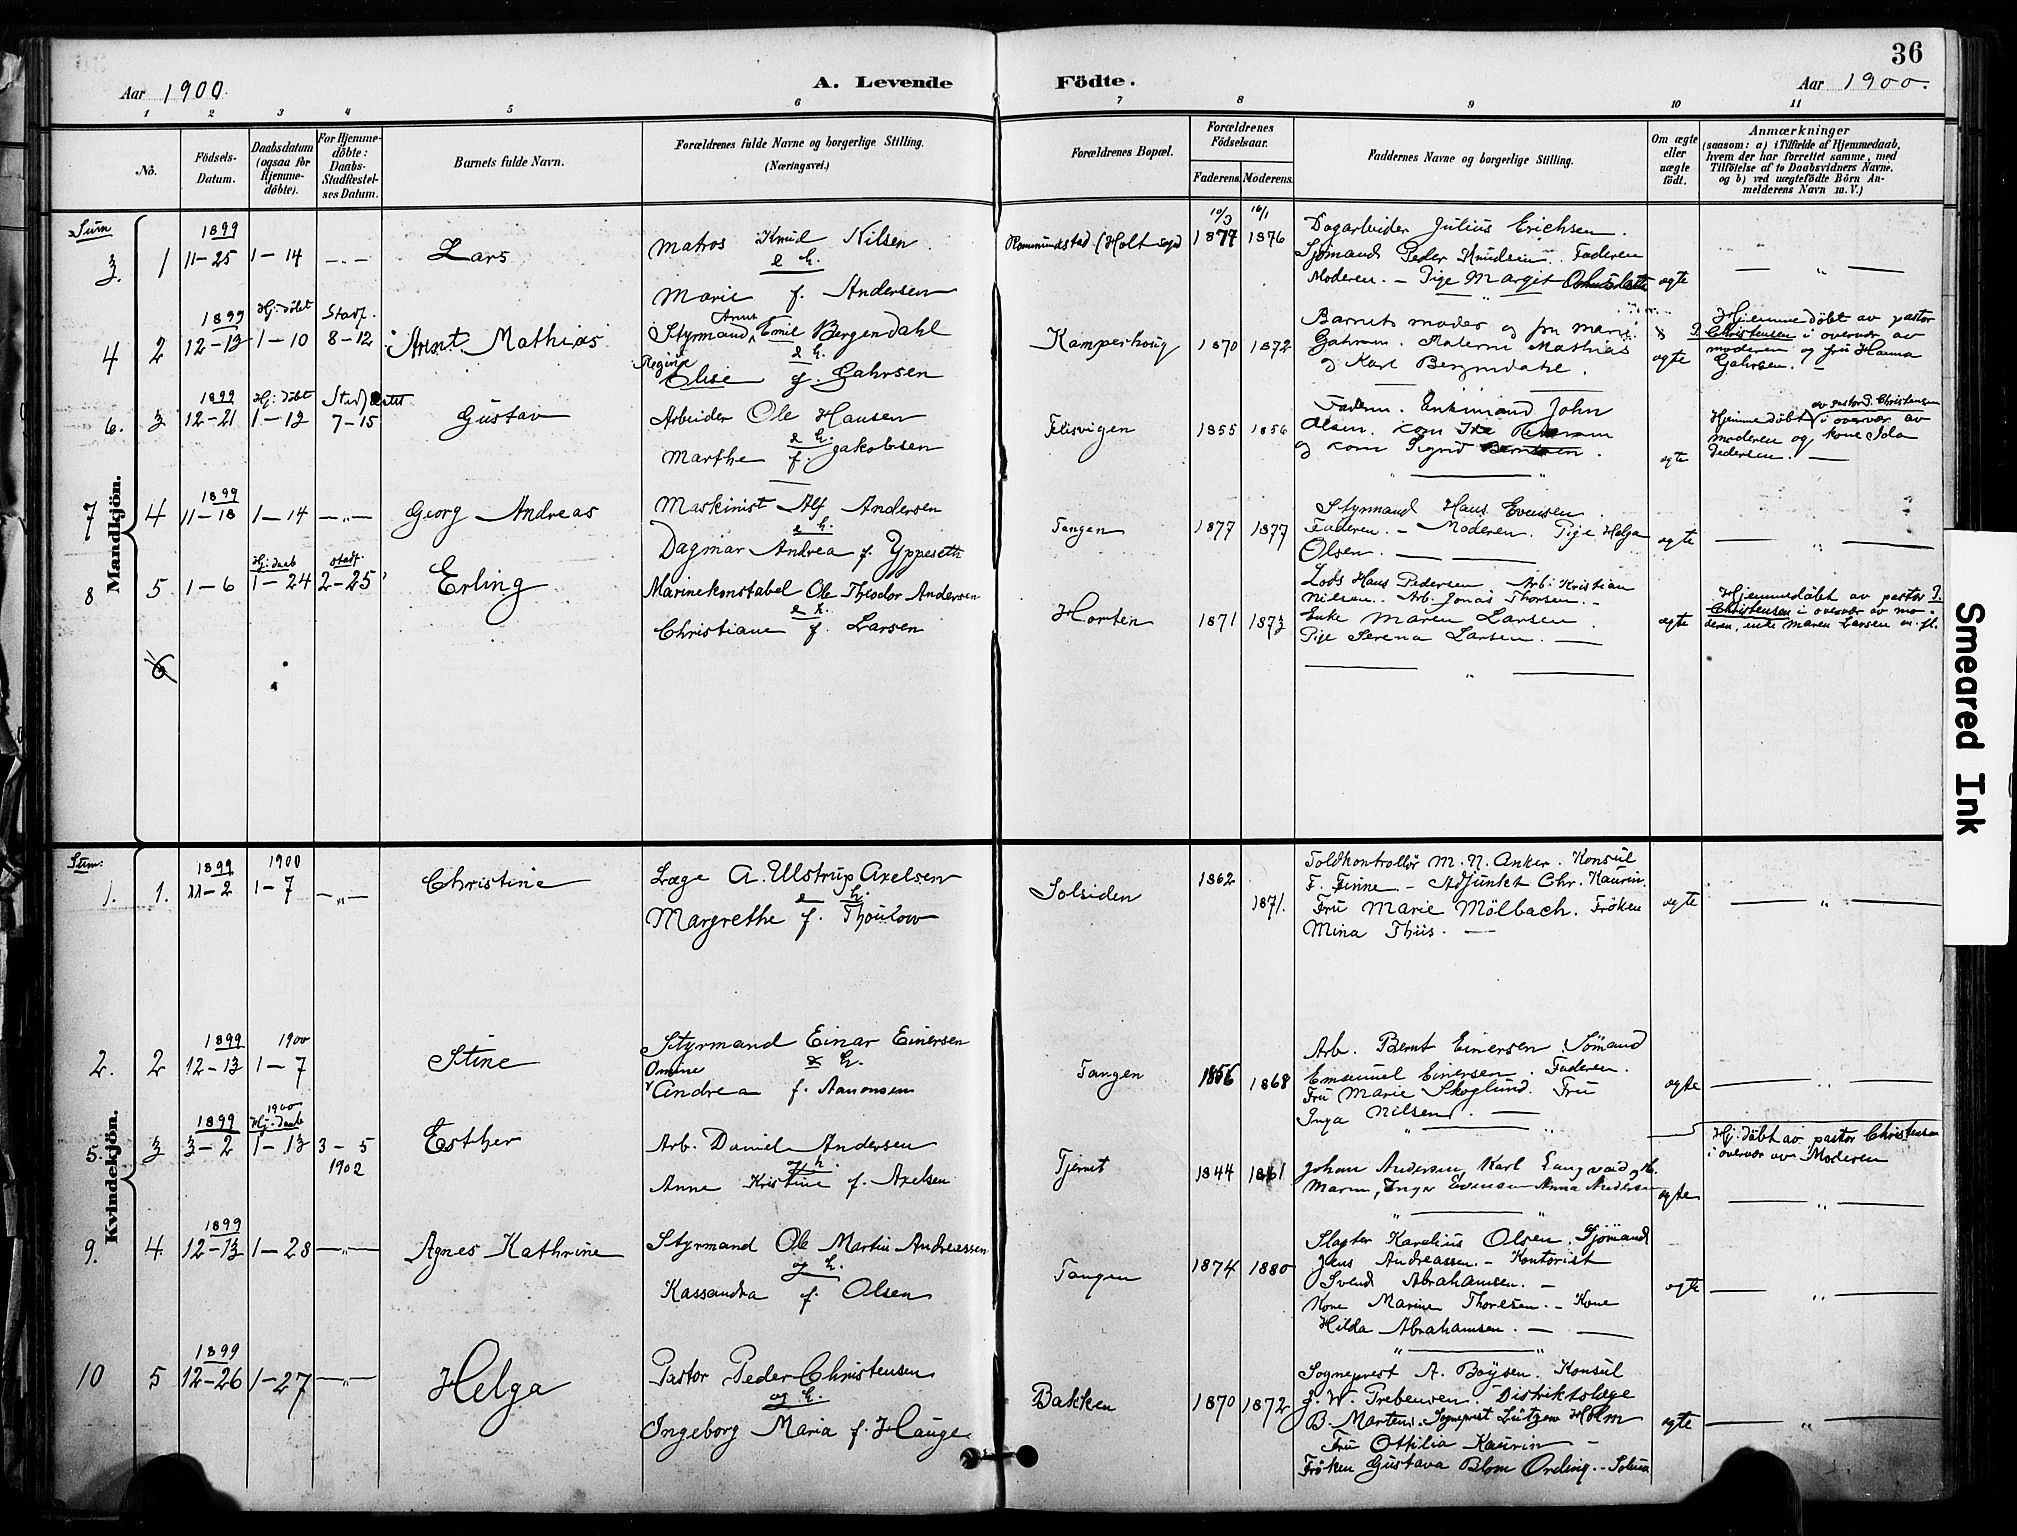 36
Aar 1900
A. Levende Födte.
Aar 1900.
1 2 3 4 5 6 7 8 9 10 11
No.
Födsels-Datum.
Daabsdatum (ogsaa for Hjemme-döbte).
For Hjemme-döbte: Daabs-Stadfæstel-ses Datum.
Barnets fulde Navn.
Forældrenes fulde Navne og borgerlige Stilling.
(Næringsvei.)
Forældrenes Bopæl.
Forældrenes Födselsaar.
Faderens. Moderens.
Faddernes Navne og borgerlige Stilling.
Om ægte eller uægte födt.
Anmærkninger
(saasom: a) i Tilfælde af Hjemmedaab,
hvem der har forrettet samme, med
Tilföielse af to Daabsvidners Navne,
og b) ved uægtefödte Börn An-
melderens Navn m. V.)
Mandkjön.
Sum
3. 1 1899 11-25 1-14 Lars
Matros Knud Nilsen
e h.
Marie f. Andersen
(Holt sogn)
10/3 1877 16/1 1876
Dagarbeider Julius Erichsen.
Sjømand Peder Knudsen. Faderen
Moderen. - Pige Margit
ægte
4 2 1899 12-13 Hj: döbt 1-10 Stadf. 8-12 Arnt Mathias
Styrmand Arnt Emil Bergendahl
e h.
Regine Elise f. Gahrsen
Kamperhoug
1870 1872
Barnets moder og fru Marie
Gahrsen. Mathias
og Karl Bergendahl.
ægte
Hjemmedöbt av pastor
P. Christensen i overvær av
moderen og fru Hanna
Gahrsen.
6. 3 1899 12-21 Hj: döbt 1-13 7-15 Gustav
Arbeider Ole Hansen
e h.
Marthe f. Jakobsen
Flisvigen
1855 1856
Faderen. Enkemand John
Olsen. Kone
og kone Signe
ægte
av pastor P. Christensen
Hjemmedöbt i overvær av
moderen og kone Ida
Pedersen.
7 4 1899 11-18 1-14 Georg Andreas
Maskinist Alf Andersen
e h.
Dagmar Andrea f. Yppeseth
Tangen
1877 1877
Styrmand Hans Evensen
Faderen. - Moderen. Pige Helga
Olsen.
ægte
8 5 1-6 Hj: daab 1-24 Stadf 2-25 Erling
Marinekonstabel Ole Theodor Andersen
e h.
Christiane f. Larsen
Horten
1871 1873
Lods Hans Pedersen, Arb. Kristian
Nilsen. Arb. Jonas Thorsen.
Enke Maren Larsen
Pige Serena Larsen.
ægte
Hjemmedöbt av pastor P.
Christensen i overvær av mo-
deren, enke Maren Larsen m. fl.
6
Kvindekjön.
Sum:
1. 1. 1899 11-2 1900 1-7 Christine
Læge A. Ulstrup Axelsen
e h.
Margrethe f. Thoulow
Solsiden
1862 1871.
Toldkontrollör M. N. Anker. Konsul
F. Finne - Adjunkt Chr. Kaurin.
Fru Marie Mölbach. Fröken
Mina Thiis.
ægte
2. 2 1899 12-13 1900 1-7 Stine
Styrmand Einar Einersen
& h.
Omine Andrea f. Aanonsen
Tangen
1856 1868
Arb. Bernt Einersen. Sömand
Emanuel Einersen. Faderen.
Fru Marie Skoglund. Fru
Inga Nilsen.
ægte
5. 3 1899 3-2 1900 Hj: daab 1-13 3-5 1902 Esther
Arb. Daniel Andersen
og h.
Anne Kristine f. Axelsen
Tjernet
1844 1861
Johan Andersen, Karl Langvad og h.
Maren, Inger Evensen Anna Andersen
ægte
Hj. döbt av pastor Christensen
i overvær av Moderen
9. 4 1899 12-13 1-28 Agnes Kathrine
Styrmand Ole Martin Andreassen
og h.
Kassandra f. Olsen
Tangen
1874 1880
Slagter Karelius Olsen. Sjömand
Jens Andreassen. - Kontorist
Svend Abrahamsen. -
Kone Marine Thorsen. - Kone
Hilda Abrahamsen.
ægte
10 5 1899 12-26 1-27 Helga
Pastor Peder Christensen
og h.
Ingeborg Maria f. Hauge
Bakken
1870 1872
Sogneprest A. Boysen. Konsul
J. W. Prebensen. Distriktslæge
B. Martens. Sogneprest Lützow Holm
Fru Ottilia Kaurin -
Fröken Gustava Blom
ægte
Smeared Ink